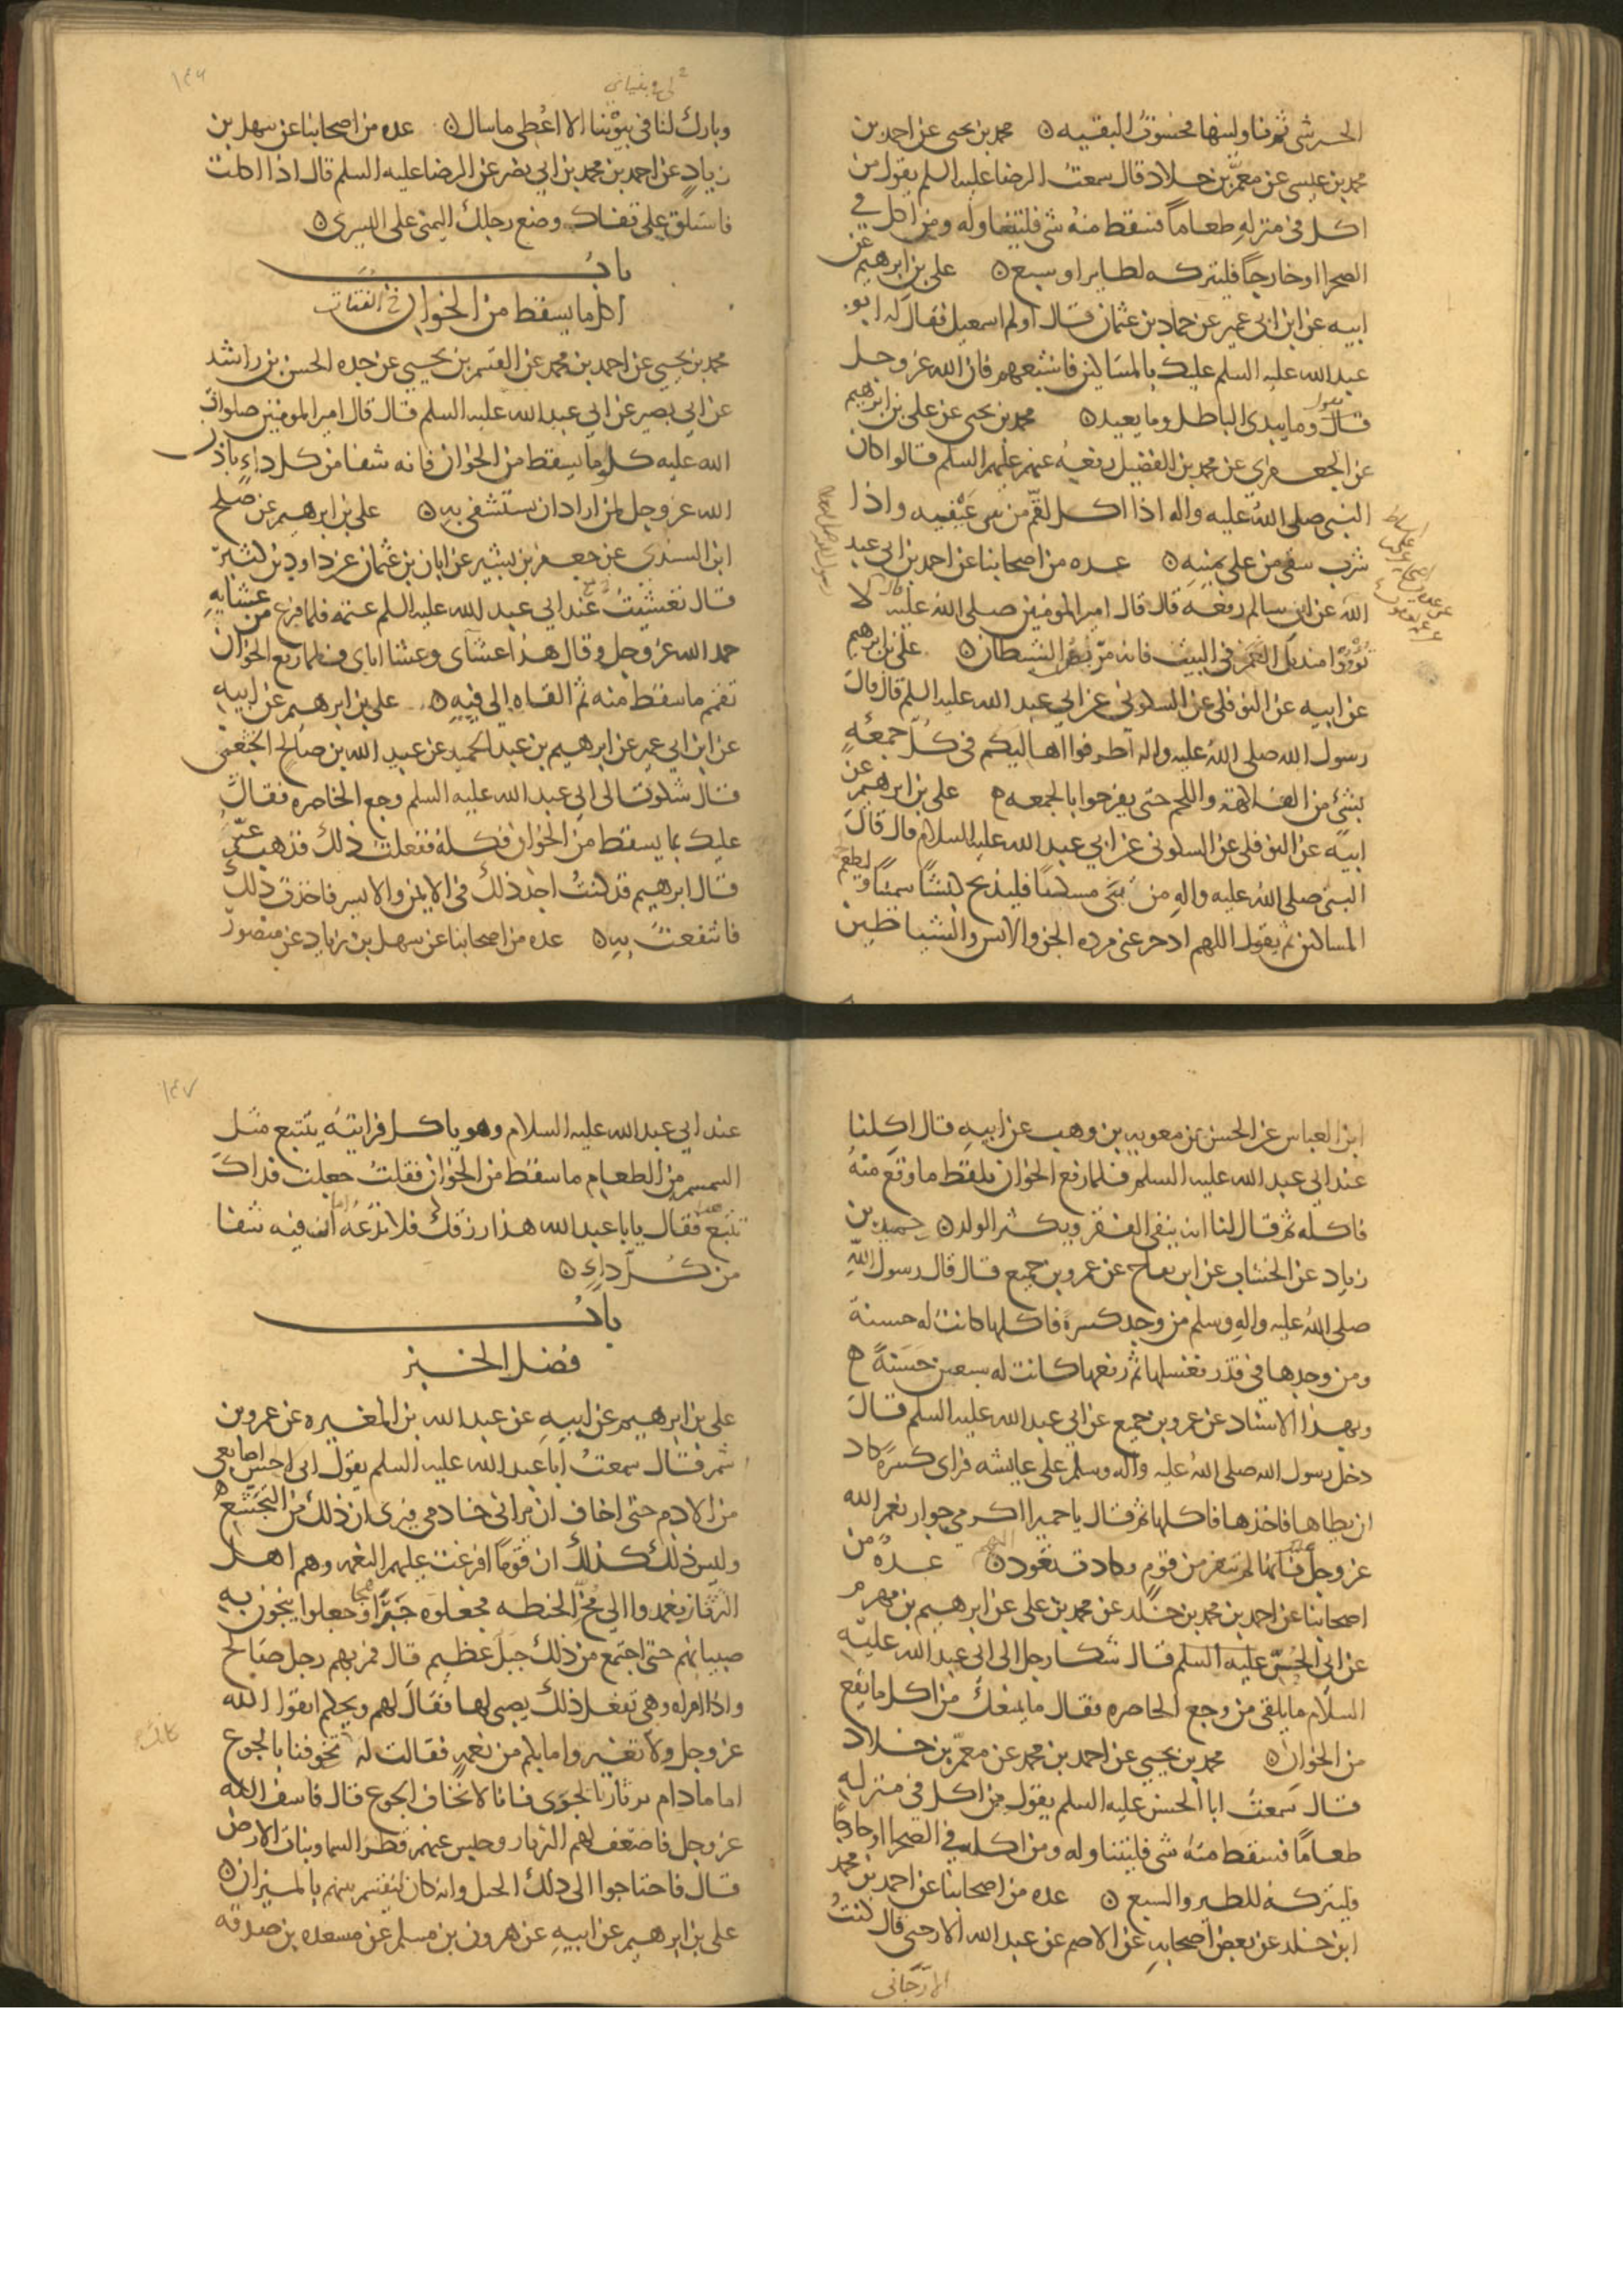 الحسر شى ثم ناوليها فحسوت البقيه ن محمد بن يحيى عن احمد بن
محمد بن عيسى عن معمّر بن خلاد قال سمعتُ الرضا عليه السلم يقول من
اكل فى منزلهِ طعاماً فسقط منهُ شى فليتناوله ومن اكل في
الصحرا او خارجاً فليتركه لطاير او سبع ن على بن ابرهيم عن
ابيه عن ابن ابى عمير عن حماد بن عثمان قال اولم اسمعيل فقال له ابو
عبد الله عليه السلم عليك بالمساكين فاشبعهم فان الله عز وجل
قال وما يبدى الباطل وما يعيد ن محمد بن يحيى عن على بن ابرهيم
يقول
عن الجعفرى عن محمد بن الفضيل رفعهُ عنهم عليهم السلم قالوا كان
النبى صلى اللهُ عليه واله اذا اكل لقّم من بين عَيْنيه واذا
شرب سقى من على يمينهِ ن عده من اصحابنا عن احمد بن ابى عبد
الله عن ابن سالم رفعهُ قال قال امير المومنين صلى اللهُ عليه لا
تُوْوُوا منديل الغَمَر فى البيت فانه مربض الشيطان ن على بن ابرهيم
عن ابيه عن النوفلى عن السكونى عن ابى عبد الله عليه السلم قال قال
رسول الله صلى اللهُ عليه واله اطرفوا اهاليكم فى كُلّ جمعةٍ
بشئٍ من الفاكهة واللحم حتى يفرحوا بالجمعه ه على بن ابرهيم عن
ابيه عن النوفلى عن السكونى عن ابى عبد الله عليه السلام قال قال
النبى صلى اللهُ عليه والهِ من بَنَى مسكناً فليذبح كبشاً سمناً وليطعم
المساكين ثم يقول اللهم ادحر عنى مرده الجن والانس والشياطين
١٤٦
وبارك لنا فى بيوتنا الا اعُطى ماسال ن عده من اصحابنا عن سهل بن
زيادٍ عن احمد بن محمد بن ابى نصر عن الرضا عليه السلم قال اذا اكلت
فاستلق على قفاك وضع رجلك اليمنى على اليسرى ن
بابُ
اكل ما يسقط من الخوان
محمد بن يحيى عن احمد بن محمد عن القسم بن يحيى عن جده الحسن بن راشد
عن ابى بصير عن ابى عبد الله عليه السلم قال قال امير المومنين صلوات
الله عليه كلو ما يسقط من الخوان فانه شفا من كل داءٍ باذن
الله عز وجل لمن اراد ان يستشفى بهِ ن على بن ابرهيم عن صلح
ابن السندى عن جعفر بن بشير عن ابان بن عثمان عن داود بن كثير
قال تعشيتُ عند ابى عبد الله عليه السلم عتمه فلما فرغ من عشايهِ
حمد الله عز وجل وقال هذا عشاى وعشا اباى فلما رفع الخوان
تقمم ما سقط منه ثم القاه الى فيهِ ن على بن ابرهيم عن ابيهِ
عن ابن ابى عمير عن ابرهيم بن عبد الحميد عن عبيد الله بن صالح الخثعمى
قال شكوت الى ابى عبد الله عليه السلم وجع الخاصره فقال
عليك بما يسقط من الخوان فكلهُ ففعلتُ ذلك فذهب عنّى
قال ابرهيم قد كنتُ اجد ذلك فى الايمن والايسر فاخذت ذلك
فانتفعتُ بهِ ن عده من اصحابنا عن سهل بن زياد عن منصور
ابن العباس عن الحسن بن معويه بن وهب عن ابيهِ قال اكلنا
عند ابى عبد الله عليه السلم فلما رفع الخوان يلقط ما وقع منهُ
فاكله ثم قال لنا انه ينفى الفقر ويكثر الولد ن حميد بن
زياد عن الخشاب عن ابن بقاح عن عمرو بن جميع قال قال رسول اللّهِ
صلى اللهُ عليه والهِ وسلم من وجد كسرةً فاكلها كانت له حسنة
ومن وجدها فى قذر فغسلها ثم رفعها كانت له سبعين حَسَنةً ه
وبهذا الاسناد عن عمرو بن جميع عن ابى عبد الله عليه السلم قال
دخل رسول الله صلى اللهُ عليه واله وسلم على عايشه فراى كسرةً كاد
ان يطاها فاخذها فاكلها ثم قال يا حميرا اكرمى جوار نعم الله
عز وجل فانها لم تنفر من قومٍ فكادت تعود ن عدهُ من
اصحابنا عن احمد بن محمد بن خلد عن محمد بن على عن ابرهيم بن مهزم
عن ابى الحسن عليه السلم قال شكا رجل الى ابى عبد الله عليهِ
السلام ما يلقى من وجع الخاصره فقال ما يمنعك من اكل ما يقع
من الخوان ن محمد بن يحيى عن احمد بن محمد عن معمّر بن خلاد
قال سمعتُ ابا الحسن عليه السلم يقول من اكل فى منزلهِ
طعاماً فسقط منهُ شى فليتناوله ومن اكله فى الصحرا او خارجاً
فليتركهُ للطير والسبع ن عده من اصحابنا عن احمد بن محمد
ابن خلد عن بعض اصحابهِ عن الاصم عن عبد الله الارجنى قال كنتُ
الارّجانى
١٤٧
عند ابى عبد الله عليه السلام وهو ياكل فرايتهُ يتتبع مثل
السمسم من الطعام ما سقط من الخوان فقلتُ جعلت فداك
تتبع هذا فقال يابا عبد الله هذا رزقك فلا تدعهُ اما ان فيه شفا
من كُلّ داءٍ ن
بابُ
فضل الخبز
على بن ابرهيم عن ابيهِ عن عبد الله بن المغيره عن عمرو بن
شمر قال سمعتُ ابا عبد الله عليه السلم يقول انى الحس اصابعى
من الادم حتى اخاف ان يرانى خادمى فيرى ان ذلك من التجشع
وليس ذلك كذلك ان قوماً افرغت عليهم النعمه وهم اهل
الثرثار فعمدوا الى مُخّ الحنطه فجعلوه خبزا هجا وجعلوا ينجون بهِ
صبيانهم حتى اجتمع من ذلك جبل عظيم قال فمر بهم رجل صالح
واذا امراه وهى تفعل ذلك بصبى لها فقال لهم ويحكم اتقوا الله
عز وجل ولا تغيروا ما بكم من نعمهٍ فقالت لهُ تخوفنا بالجوع
اما مادام ثرثارنا يجرى فانا لا نخاف الجوع قال فاسف الله
عز وجل فاضعف لهم الثرثار وحبس عنهم قطرَ السما ونبات الارض
قال فاحتاجوا الى ذلك الجبل وانه كان ليُقتسم بينهم بالميزان ن
على بن ابرهيم عن ابيهِ عن هرون بن مسلم عن مسعده بن صدقه